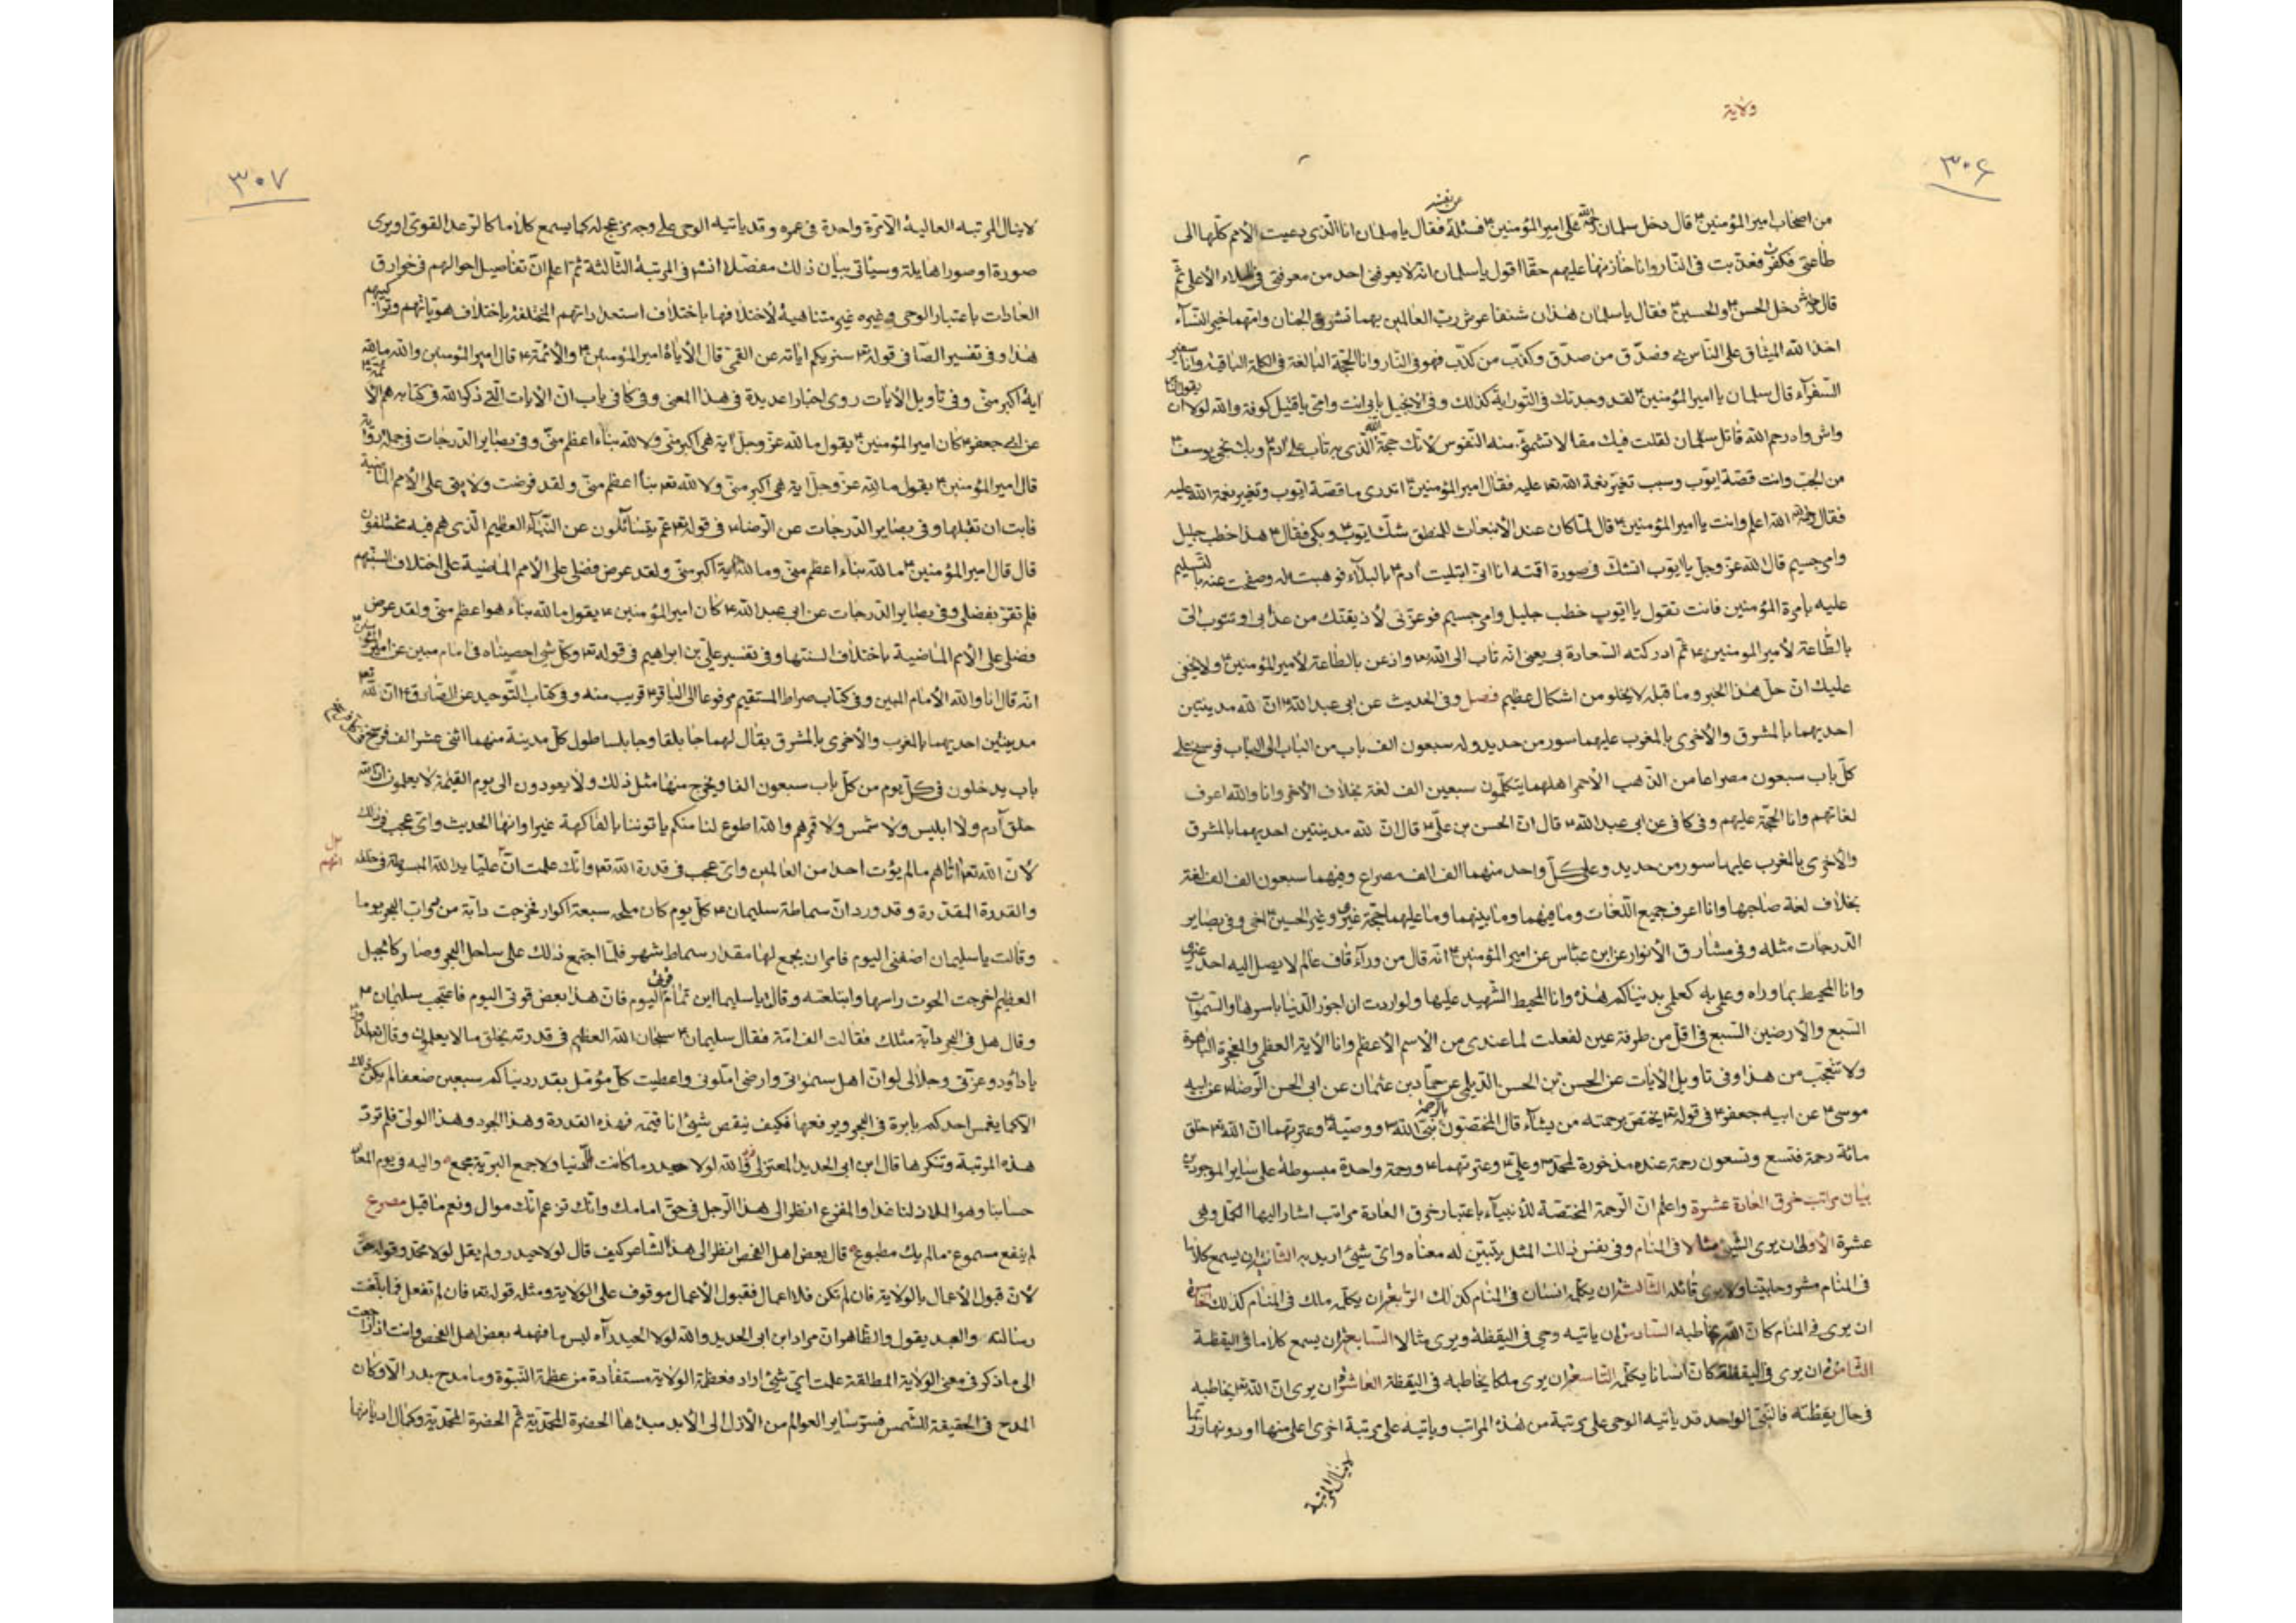 ولاية
٣٠۶
عن نفسه
من اصحاب امير المؤمنين ع قال دخل سلمان رحمه الله على امير المؤمنين ع فسئله فقال يا سلمان انا الذى دعيت الأمم كلها الى
طاعتى فكفرت فعذبت فى النار وانا خازنها عليهم حقا اقول يا سلمان انه لا يعرفنى احد من معرفتى فى الملاء الأعلى ثم
قال دخل الحسن ع والحسين ع فقال يا سلمان هذان شنفا عرش رب العالمين بهما تشرق الجنان وامهما خير النساء
اخذ الله الميثاق على الناس بى فصدق من صدق وكذب من كذب فهو فى النار وانا الحجة البالغة فى الكلمة الباقية وانا سفير
السفرآء قال سلمان يا امير المؤمنين ع لقد وجدتك فى التوراية كذلك وفى الانجيل بابى انت وامى يا قتيل كوفة والله لولا ان يقول الناس
واش واه رحم الله قاتل سلمان لقلت فيك مقالا تشمئز منه النفوس لأنك حجة الله الذى به تاب على آدم ع وبك نجى يوسف ع
من الجب وانت قصة ايوب وسبب تغير نعمة الله عليه فقال امير المؤمنين ع اتدرى ما قصة ايوب وتغير نعمة الله عليه
فقال الله اعلم وانت يا امير المؤمنين ع قال لما كان عند الأنبعاث للمنطق شك ايوب وبكى فقال هذا خطب جليل
وامر جسيم قال الله عز وجل يا ايوب اتشك فى صورة اقمته انا انى ابتليت آدم ع بالبلاء فوهبت له وصفحت عنه بالتسليم
عليه بامرة المؤمنين فانت تقول يا ايوب خطب جليل وامر جسيم فوعزتى لأذيقنك من عذابى او تتوب الى
بالطاعة لأمير المومنين ع ثم ادركته السعادة بى يعنى انه تاب الى الله واذعن بالطاعة لأمير المؤمنين ع ولا يخفى
عليك ان حل هذا الخبر وما قبله لا يخلو من اشكال عظيم فصل وفى الحديث عن ابى عبد الله ع ان لله مدينتين
احديهما بالمشرق والأخرى بالمغرب عليهما سور من حديد وله سبعون الف باب من الباب الى الباب فرسخ على
كل باب سبعون مصراعا من الذهب الأحمر اهلهما يتكلمون سبعين الف لغة بخلاف الأخر وانا والله اعرف
لغاتهم وانا الحجة عليهم وفى كافى عن ابى عبد الله ع قال ان الحسن بن على ع قال ان لله مدينتين احديهما بالمشرق
والأخرى بالمغرب عليهما سور من حديد وعلى كل واحد منهما الف الف مصراع وفيهما سبعون الف الف لغة
بخلاف لغة صاحبها وانا اعرف جميع اللغات وما فيهما وما بينهما وما عليهما حجة غيرى وغير الحسين ع اخى وفى بصاير
الدرجات مثله وفى مشارق الأنوار عن ابن عباس عن امير المؤمنين ع انه قال من ورآء قاف عالم لا يصل اليه احد غيرى
وانا المحيط بما وراه وعلمى به كعلمى بدنياكم هذه وانا المحيط الشهيد عليها ولو اردت ان اجوز الدنيا باسرها والسموات
السبع والأرضين السبع فى اقل من طرفة عين لفعلت لما عندى من الأسم الأعظم وانا الأية العظمى والمعجزة الباهرة
ولا تتعجب من هذا وفى تاويل الأيات عن الحسن بن الحسن الديلمى عن حماد بن عثمان عن ابى الحسن الرضا ع عن ابيه
موسى ع عن ابيه جعفر ع فى قوله تع يختص برحمته من يشآء قال المختصون بالرحمة نبى الله ووصيه وعترتهما ان الله تع خلق
مائة رحمة فتسع وتسعون رحمة عنده مذخورة لمحمد وعلى ع وعترتهما ورحمة واحدة مبسوطة على ساير الموجودين
بيان مراتب خرق العادة عشرة واعلم ان الرحمة المختصة للأنبيآء باعتبار خرق العادة مراتب اشار اليها الكمل وهى
عشرة الأولى ان يرى الشيئ مثالا فى المنام وفى نفس ذلك المثل يتبين له معناه واى شيئ اريد به الثانية ان يسمع كلاما
فى المنام مشروحا بينا ولا يرى قائله الثالثة ان يكلمه انسان فى المنام كذلك الرابعة ان يكلمه ملك فى المنام كذلك الخامسة
ان يرى فى المنام كان الله يخاطبه السادسة ان ياتيه وحى فى اليقظة ويرى مثالا السابعة ان يسمع كلاما فى اليقظة
الثامنة ان يرى فى اليقظة كان انسانا يكلمه التاسعة ان يرى ملكا يخاطبه فى اليقظة العاشرة ان يرى ان الله تع يخاطبه
فى حال يقظته فالنبى الواحد قد ياتيه الوحى على مرتبة من هذه المراتب وياتيه على مرتبة اخرى اعلى منها او دونها وربما
لا ينال المرتبة
٣٠٧
لا ينال المرتبه العالية الا مرة واحدة فى عمره وقد ياتيه الوحى على وجه مزعج له كما يسمع كلاما كالرعد القوى او يرى
صورة او صورا هايلة وسياتى بيان ذلك مفصلا انشر فى المرتبة الثالثة ثم اعلم ان تفاصيل احوالهم فى خوارق
العادات باعتبار الوحى وغيره غير متناهية لأختلافها باختلاف استعداداتهم المختلفة باختلاف هوياتهم وتراكيبهم
هذا وفى تفسير الصافى قوله تع سنريكم اياته عن القمى قال الأيات امير المؤمنين ع والأئمة ع قال امير المؤمنين والله ما لله
اية اكبر منى وفى تاويل الأيات روى اخبارا عديدة فى هذا المعنى وفى كافى باب ان الأيات التى ذكر الله فى كتابه هم الأئمة
عن ابى جعفر ع كان امير المؤمنين ع يقول ما لله عز وجل اية هى اكبر منى ولا لله بناء اعظم منى وفى بصاير الدرجات فى جملة رواية
قال امير المؤمنين ع يقول ما لله عز وجل اية هى اكبر منى ولا لله تع بنا اعظم منى ولقد فرضت ولايتى على الأمم الماضية
فابت ان تقبلها وفى بصاير الدرجات عن الرضا ع فى قوله تع عم يتسائلون عن النبأ العظيم الذى هم فيه مختلفون
قال قال امير المؤمنين ع ما لله بناء اعظم منى وما لله اية اكبر منى ولقد عرض فضلى على الأمم الماضية على اختلاف السنتهم
فلم تقر بفضلى وفى بصاير الدرجات عن ابى عبد الله ع كان امير المؤمنين ع يقول ما لله بناء هو اعظم منى ولقد عرض
فضلى على الأمم الماضية باختلاف السنتها وفى تفسير على بن ابراهيم فى قوله تع وكل شئ احصيناه فى امام مبين عن امير المؤمنين
انه قال انا والله الأمام المبين وفى كتاب صراط المستقيم مرفوعا الى الباقر ع قريب منه وفى كتاب التوحيد عن الصادق ع ان لله
مدينتين احديهما بالمغرب والأخرى بالمشرق يقال لهما جابلقا وجابلسا طول كل مدينة منهما اثنى عشر الف فرسخ فى كل فرسخ
باب يدخلون فى كل يوم من كل باب سبعون الفا ويخرج منها مثل ذلك ولا يعودون الى يوم القيمة لا يعلمون ان الله
خلق آدم ولا ابليس ولا شمس ولا قمر هم والله اطوع لنا منكم ياتوننا بالفاكهة غيرا وانها الحديث واى عجب فى ذلك
لأن الله تع اتاهم ما لم يؤت احدا من العالمين واى عجب فى قدرة الله تع وانك علمت ان عليا يد الله المبسوطة فى خلقه
والقدرة المقدرة وقد ورد ان سماطة سليمان ع كل يوم كان ملحه سبعة اكوار فخرجت دابة من دواب البحر يوما
وقالت يا سليمان اضفنى اليوم فامر ان يجمع لها مقدار سماط شهر فلما اجتمع ذلك على ساحل البحر وصار كالجبل
العظيم اخرجت الحوت راسها وابتلعته وقالت يا سليمان اين تمام قوتى اليوم فان هذا بعض قوتى اليوم فاعجب سليمان ع
وقال هل فى البحر دابة مثلك فقالت الف امة فقال سليمان ع سبحان الله العظيم فى قدرته يخلق ما لا يعلمون وقال تع لداود
يا داؤد وعزتى وجلالى لو ان اهل سمواتى وارضى املونى واعطيت كل مؤمل بقدر دنياكم سبعين ضعفا لم يكن ذلك
الا كما يغمس احدكم بابرة فى البحر ويرفعها فكيف ينقص شيئ انا قيمه فهذه القدرة وهذا الجود وهذا الولى فلم ترد
هذه المرتبة وتنكرها قال ابن ابى الحديد المعتزلى والله لولا حيدر ما كانت الدنيا ولا جمع البرية مجمع واليه فى يوم المعاد
حسابنا وهو الملاذ لنا غدا والمفزع انظر الى هذا الرجل فى حق امامك وانك تزعم انك موال ونعم ما قيل مصرع
لم ينفع مسموع ما لم يك مطبوع قال بعض اهل الفحص انظر الى هذا الشاعر كيف قال لولا حيدر ولم يقل لولا محمد وقوله حق
لأن قبول الأعمال بالولاية فان لم تكن فلا اعمال فقبول الأعمال موقوف على الولاية ومثله قوله تع فان لم تفعل فما بلغت
رسالته والعبد يقول والظاهر ان مراد ابن ابى الحديد والله لولا حيدر آه ليس ما فهمه بعض اهل الفحص وانت اذا راجعت
الى ما ذكر فى معنى الولاية المطلقة علمت اى شيئ اراد فعظمة الولاية مستفادة من عظمة النبوة وما مدح بدر الا وكان
المدح فى الحقيقة للشمس فسر ساير العوالم من الأزل الى الأبد مبدئها الحضرة المحمدية ثم الحضرة المحمدية وكمال